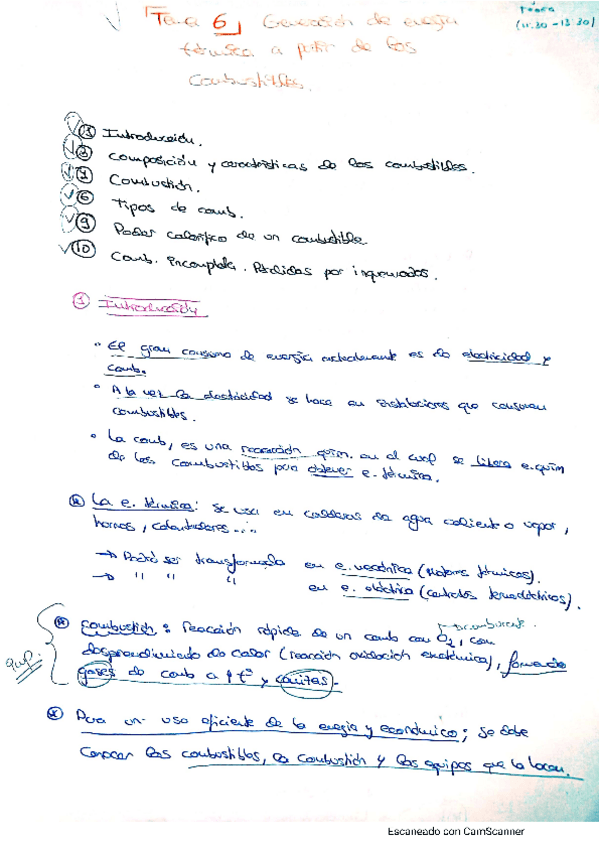 Tema 6 Generación de energía
térmica a partir de los
combustibles.
(11:30 - 13:30)
1 Introducción.
Composición y características de los combustibles.
Combustión.
6 Tipos de comb.
9 Poder calorífico de un combustible
10 Comb. Incompleta. Pérdidas por inquemados.
1 Introducción
• El gran consumo de energía es de electricidad y
comb.
• A la vez la electricidad se hace en instalaciones que consumen
combustibles.
• La comb, es una reacción quím. en el cual se libera e. quím
de los combustibles para obtener e. térmica.
La e. térmica: se usa en calderas de agua caliente o vapor,
hornos, calentadores....
→ Podrá ser transformada en e. mecánica (motores térmicos).
→ " " " en e. eléctrica (centrales termoeléctricas).
comburente.
Combustión: Reacción rápida de un comb con O₂, con
desprendimiento de calor (reacción oxidación exotérmica), formando
gases de comb a ↑ tª y cenizas.
Para un uso eficiente de la energía y económico; se debe
conocer los combustibles, la combustión y los equipos que la hacen.
Escaneado con CamScanner